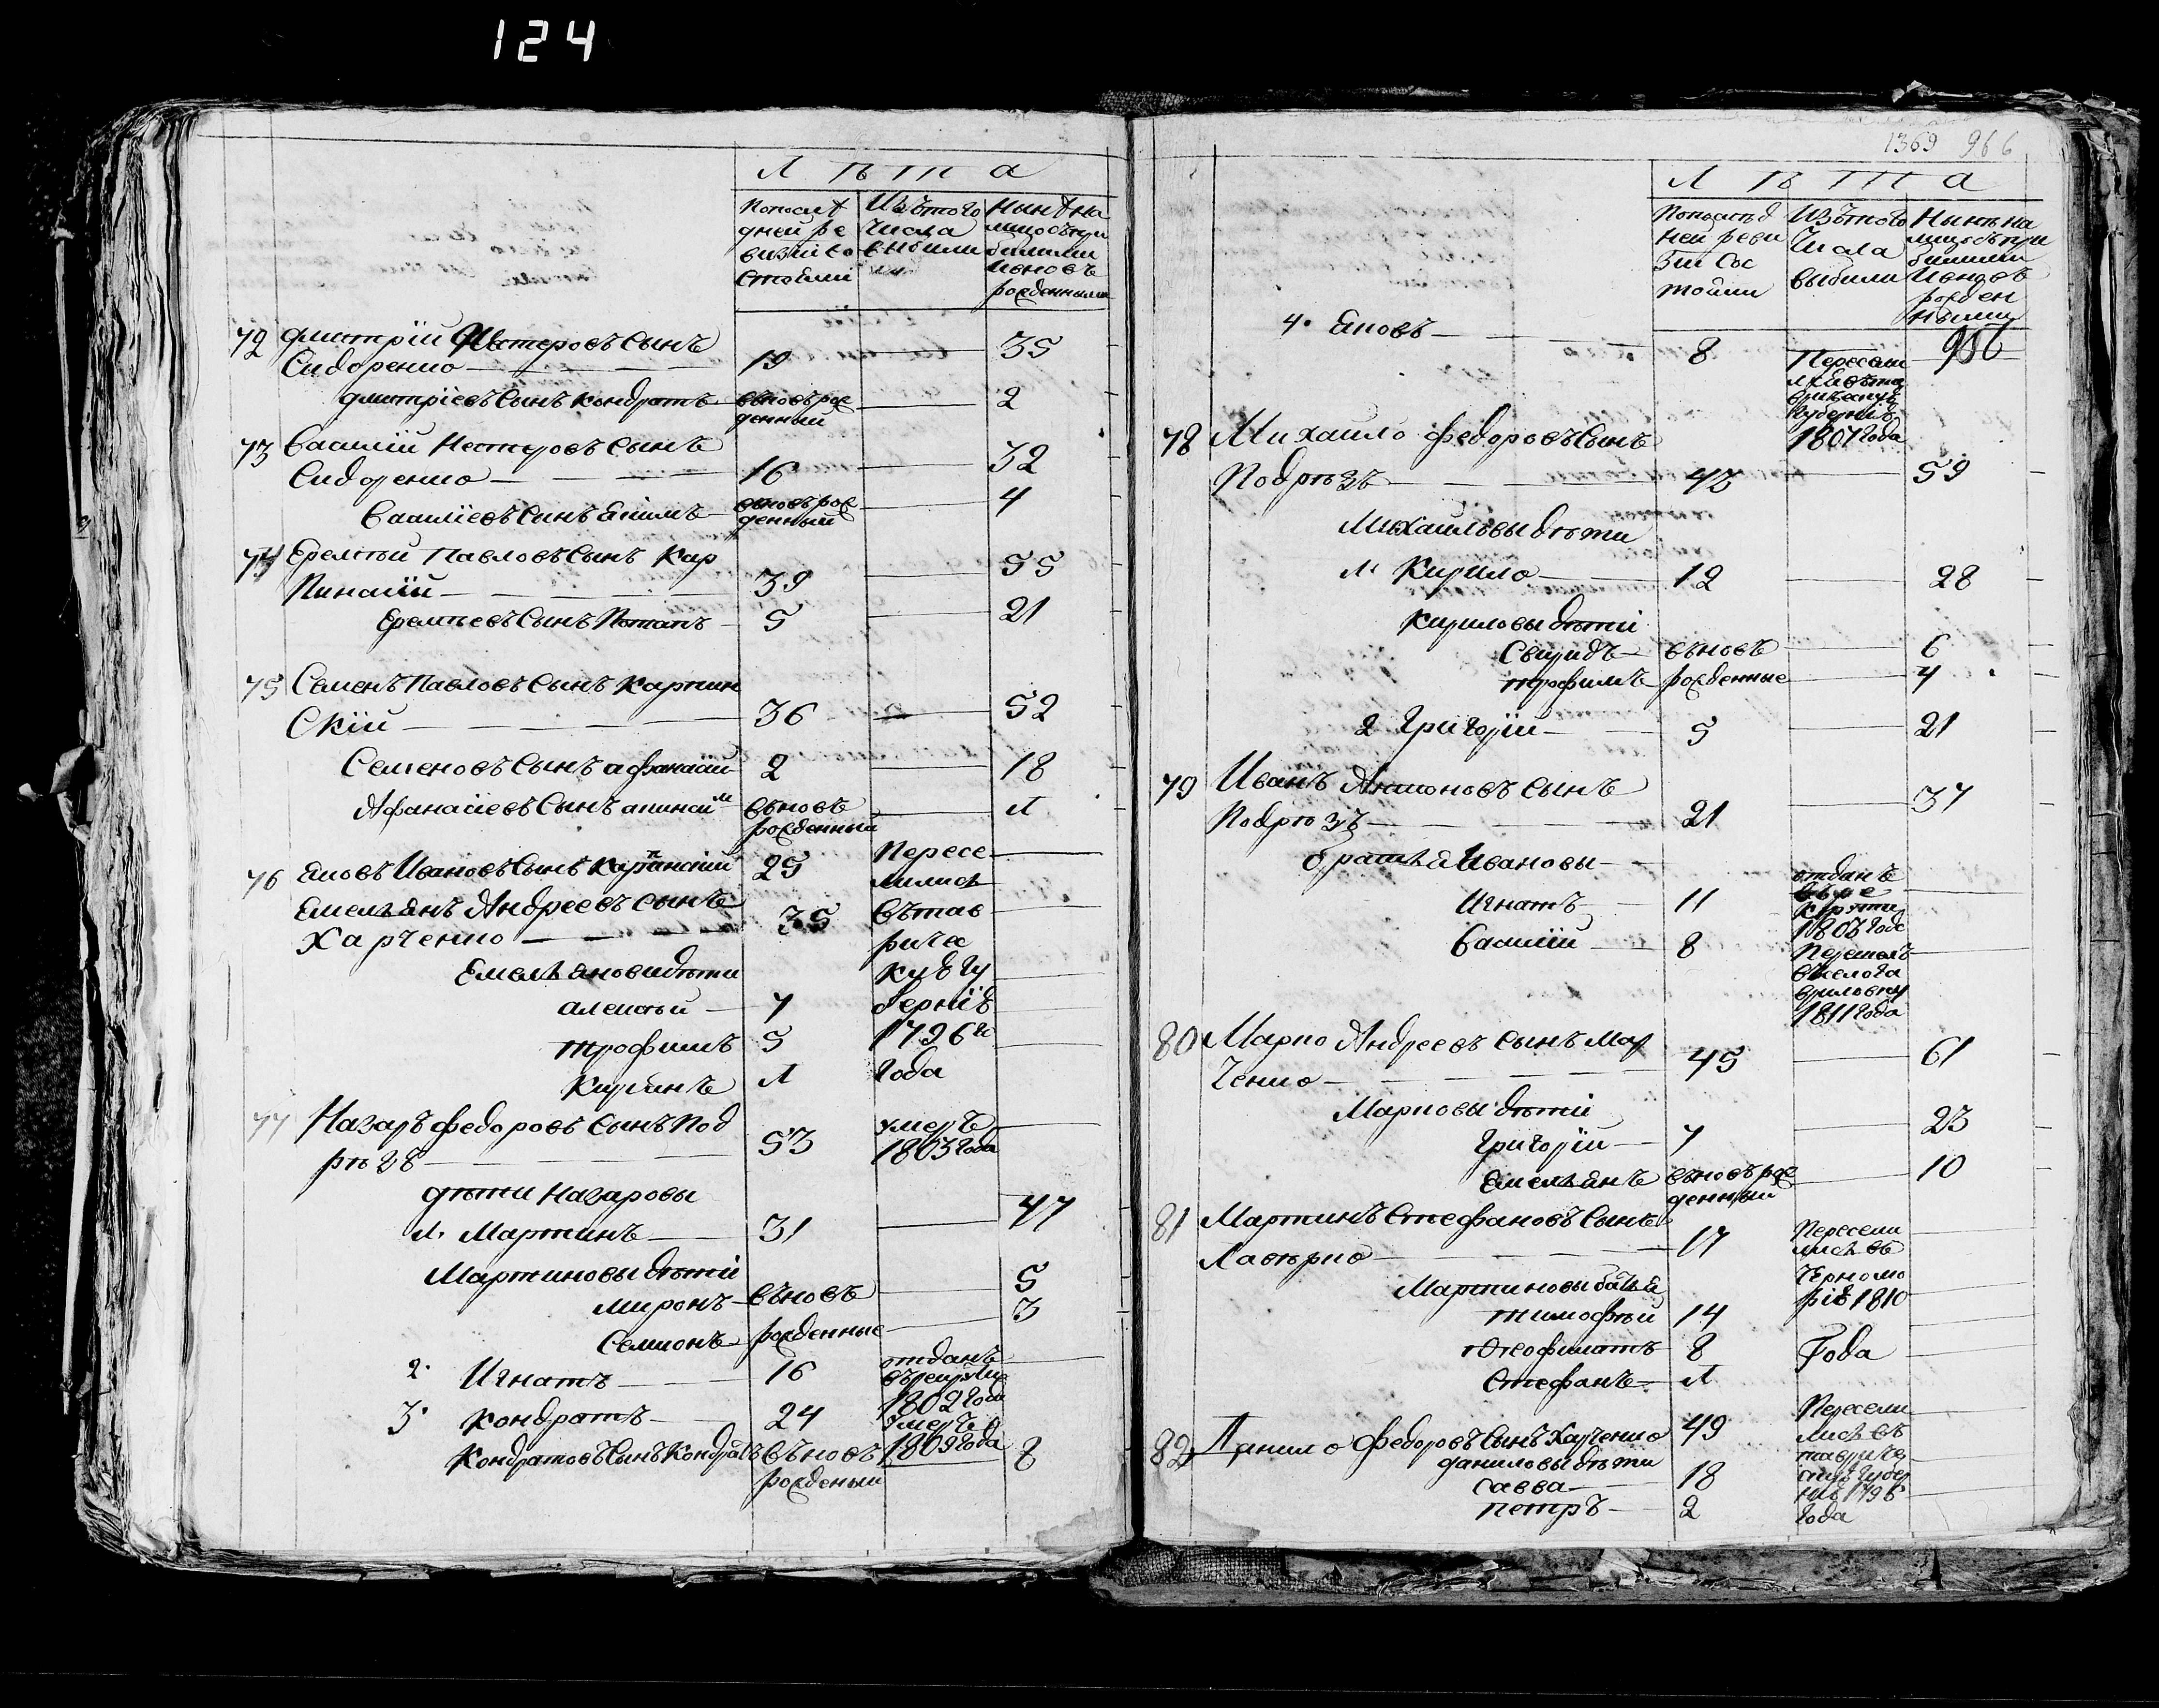 124
Лѣта
Попослѣ
дней ре
визіи со
стояли
Изътого
Числа
выбыли
Нынѣ на
лицо съ при
былыми
ивновъ
рожденными
72 Дмитрій Нестеровъ Сынъ
Сидоренко 19 35
Дмитріевъ Сынъ Кондратъ вновь рож
денный 2
73 Василій Нестеровъ Сынъ
Сидоренко 16 32
Василіевъ Сынъ Екимъ вновь рож
денный 4
74 Еремѣй Павловъ Сынъ Кар
Пинскій 39 55
Еремѣевъ Сынъ Потапъ 5 21
75 Семенъ Павловъ Сынъ Карпин
Скій 36 52
Семеновъ Сынъ Афанасій 2 18
Афанасіевъ Сынъ вновь
рожденный 1
76 Яковъ Ивановъ Сынъ Карпинскій 25 Пересе
лились
Емельянъ Андреевъ Сынъ
Харченко 35 вътав
риче
Емельяновы дѣти кую гу
Алексѣй 7 бернію
Трофимъ 5 1796 го
Киріянъ 1 Года
77 Назаръ Федоровъ Сынъ Под
рѣзъ 53 умеръ
1803 Года
Дѣти Назаровы
1. Мартинъ 31 47
Мартиновы дѣти
Миронъ вновь 5
Семионъ рожденные 3
2. Игнатъ 16 отданъ
въ рекруты
1802 Года
3. Кондратъ 24 Умеръ
1809 Года
Кондратовъ Сынъ Кондратъ вновь
рожденый 8
1369 966
Лѣта
Попослѣд
ней реви
зіи сос
тояли
Изътого
Числа
выбыли
Нынѣ на
лицо съ при
былыми
ивновъ
рожден
ными
4. Яковъ 8 Пересели
лся въ та
врическую
Губернію
1807 Года
966
78 Михайло Федоровъ Сынъ
Подрѣзъ 43 59
Михайловы дѣти
1. Кирило 12 28
Кириловы дѣти
Свиридъ вновь 6
Трофимъ рожденные 4
2 Григорій 5 21
79 Иванъ Антоновъ Сынъ
Подрѣзъ 21 37
братья Ивановы
Игнатъ 11 отданъ
въ ре
круты
1803 Года
Василій 8 Перешолъ
въ село Га
вриловку
1811 Года
80 Марко Андреевъ Сынъ Мар
Ченко 45 61
Марковы дѣти
Григорій 7 23
Емельянъ вновь рож
денный 10
81 Мартинъ Стефановъ Сынъ
Лавѣрко 17 Пересели
лись въ
Мартиновы братья Черномо
рію 1810
Тимофѣй 14
Феофилатъ 8 Года
Стефанъ 1
82 Данило Федоровъ Сынъ Харченко 49 Пересели
лись въ
Даниловы дѣти тавриче
Савва 18 скую Губер
нію 1796
Петръ 2 Года